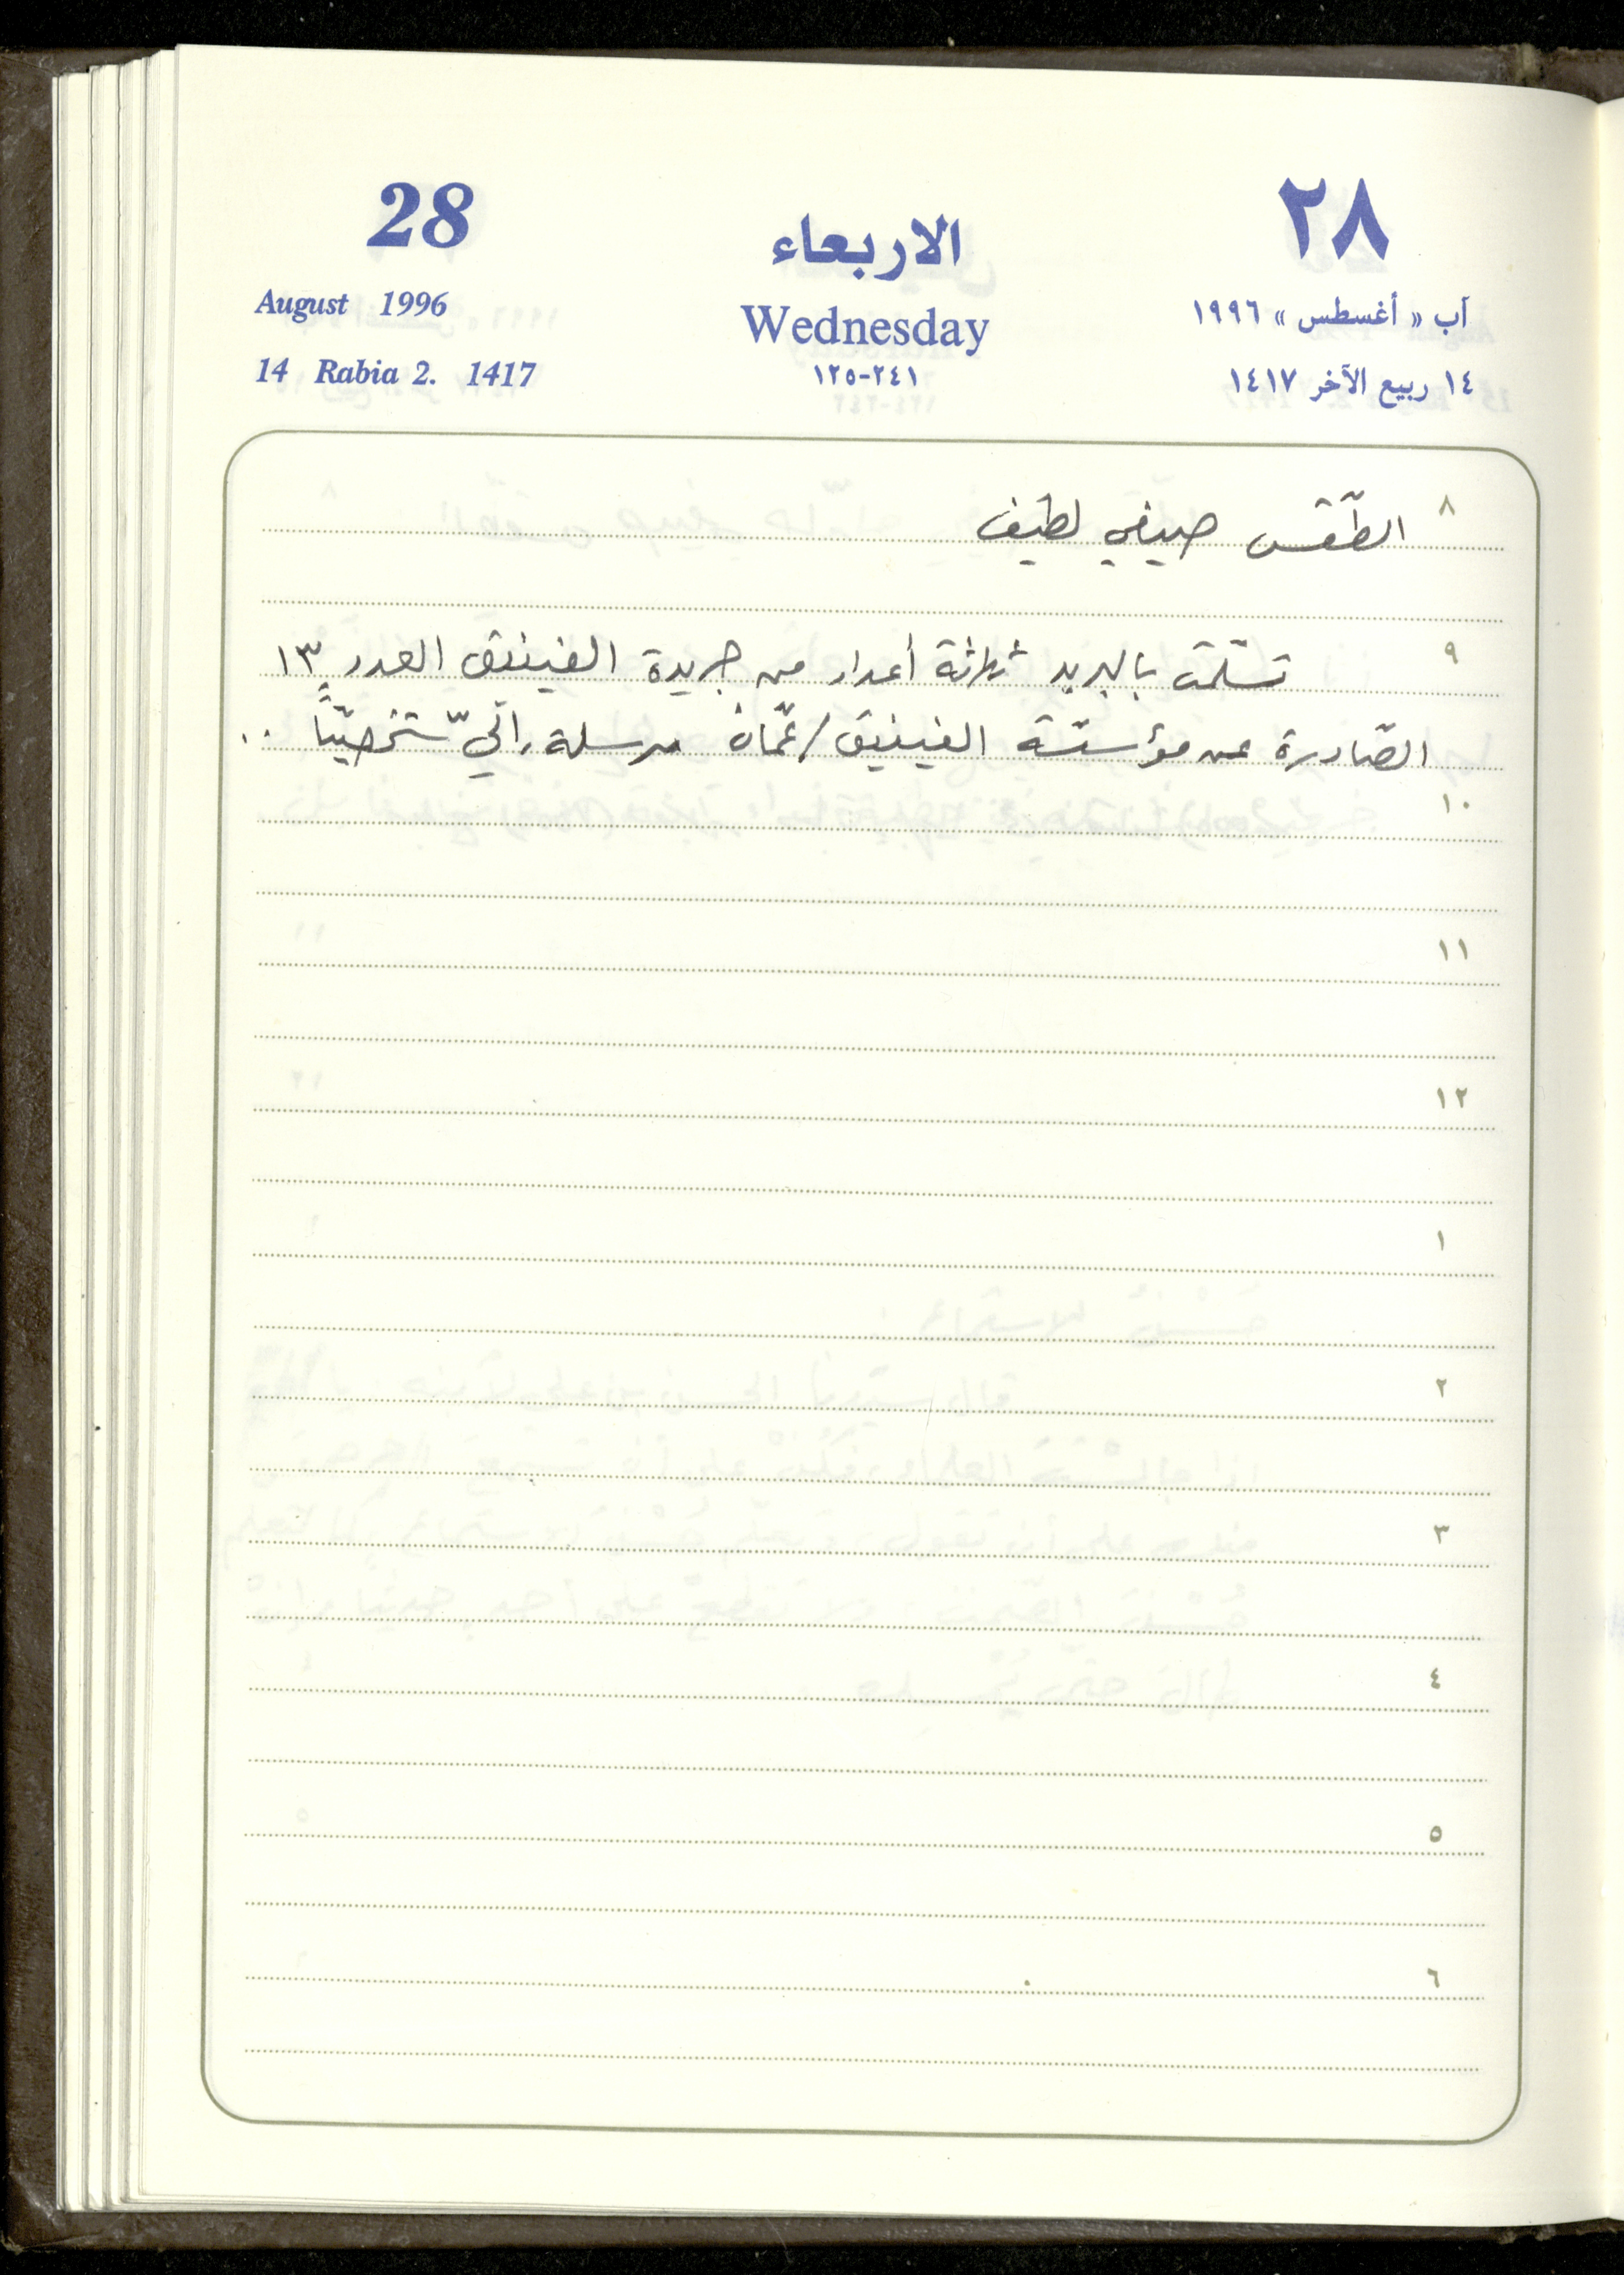 28 الاربعاء ٢٨
August 1996 Wednesday آب « أغسطس » ١٩٩٦
14 Rabia 2. 1417 ٢٤١-١٢٥ ١٤ ربيع الآخر ١٤١٧
٨ الطّقس صيفي لطيف
٩ تسلّمت بالبريد ثلاثة أعداد من جريدة الفينيق العدد ١٣
الصّادرة عن مؤسسّة الفينيق/عمّان مرسلة إليّ شخصيّاً ..
١٠
١١
١٢
١
٢
٣
٤
٥
٦